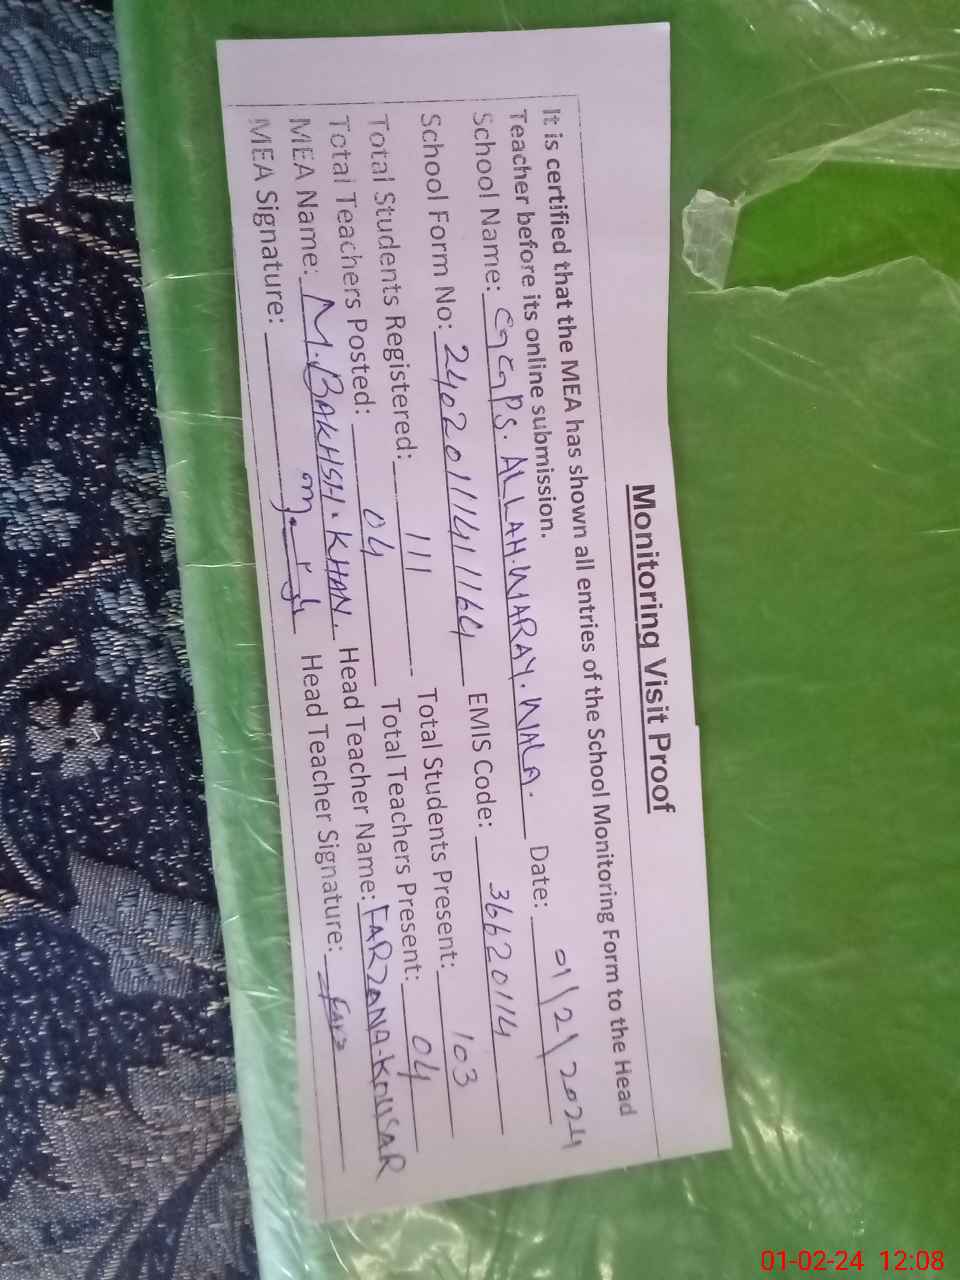 Monitoring Visit Proof
It is certified that the MEA has shown all entries of the School Monitoring Form to the Head
Teacher before its online submission.
School Name: GGPS. ALLAH.WARAY.WALA. Date: 01/2/2024
School Form No: 24020111411164 EMIS Code: 36620114
Total Students Registered: 111 Total Students Present: 103
Total Teachers Posted: 04 Total Teachers Present: 04
MEA Name: M.BAKHSH.KHAN. Head Teacher Name: FARZANA.KOUSAR
MEA Signature: Head Teacher Signature:
01-02-24 12:08